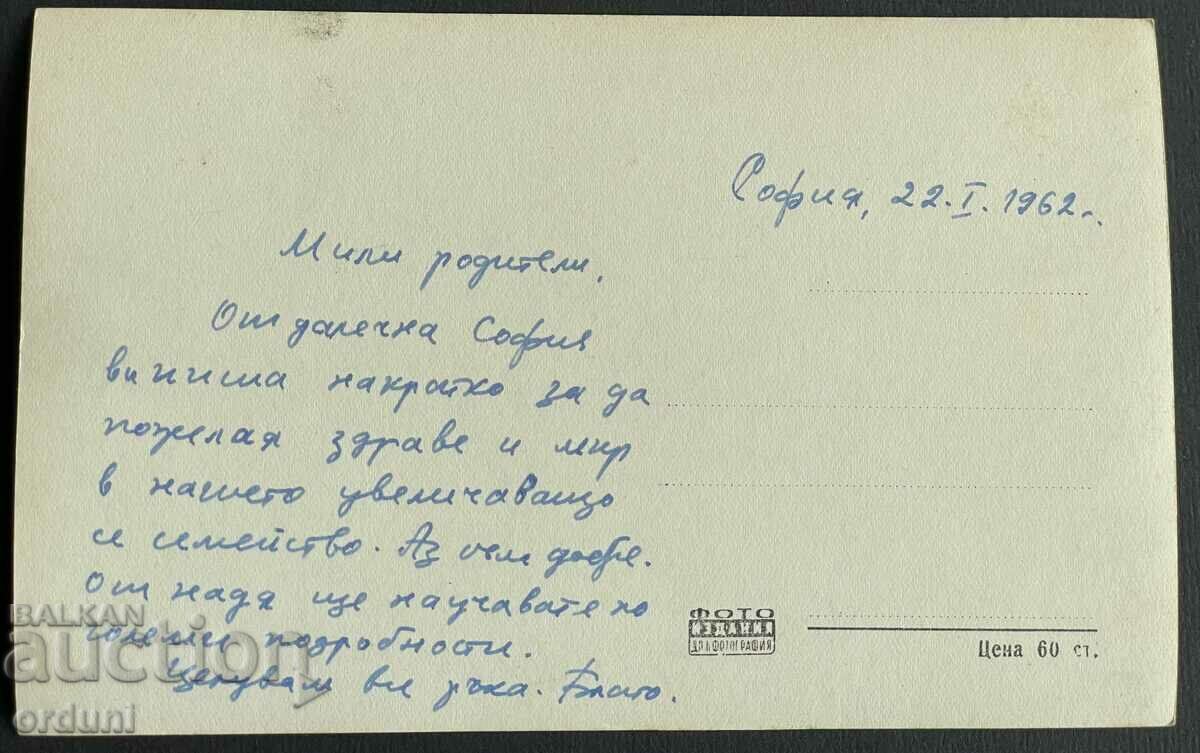 София, 22.I.1962г.
Мили родители,
От далечна София
ви пиша накратко за да
пожелая здраве и мир
в нашето увеличаващо
се семейство. Аз съм добре.
От Надя ще научавате по
големи подробности.
Целувам ви ръка. Благо.
ФОТО
ИЗДАНИЯ
ДП БЪЛГ. ФОТОГРАФИЯ
Цена 60 ст.
BALKAN
auction
orduni